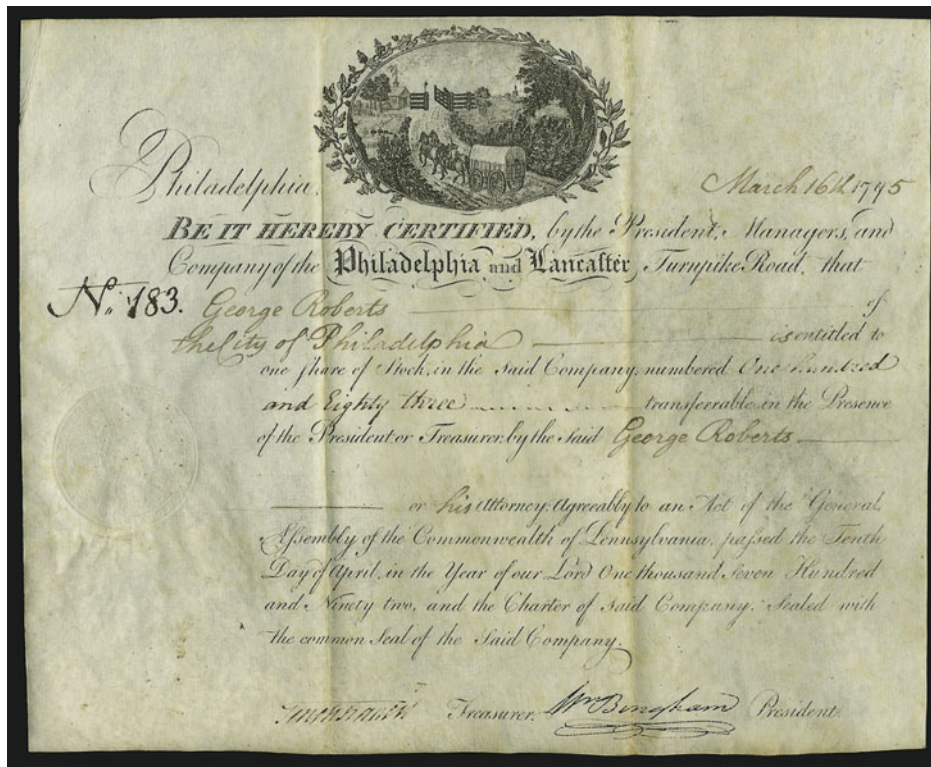 Philadelphia, March 16th 1795
BE IT HEREBY CERTIFIED, by the President, Managers, and
Company of the Philadelphia and Lancaſter Turnpike Road, that
No. 183. George Roberts of
the City of Philadelphia is entitled to
one ſhare of Stock, in the ſaid Company, numbered One hundred
and Eighty three transferrable in the Presence
of the President or Treasurer by the ſaid George Roberts
or his Attorney. Agreeably to an Act of the General
Aſsembly of the Commonwealth of Pennsylvania, paſsed the Tenth
Day of April, in the Year of our Lord One thousand Seven Hundred
and Ninety two, and the Charter of said Company. Sealed with
the common Seal of the Said Company.
Treasurer. Wm Bingham President.